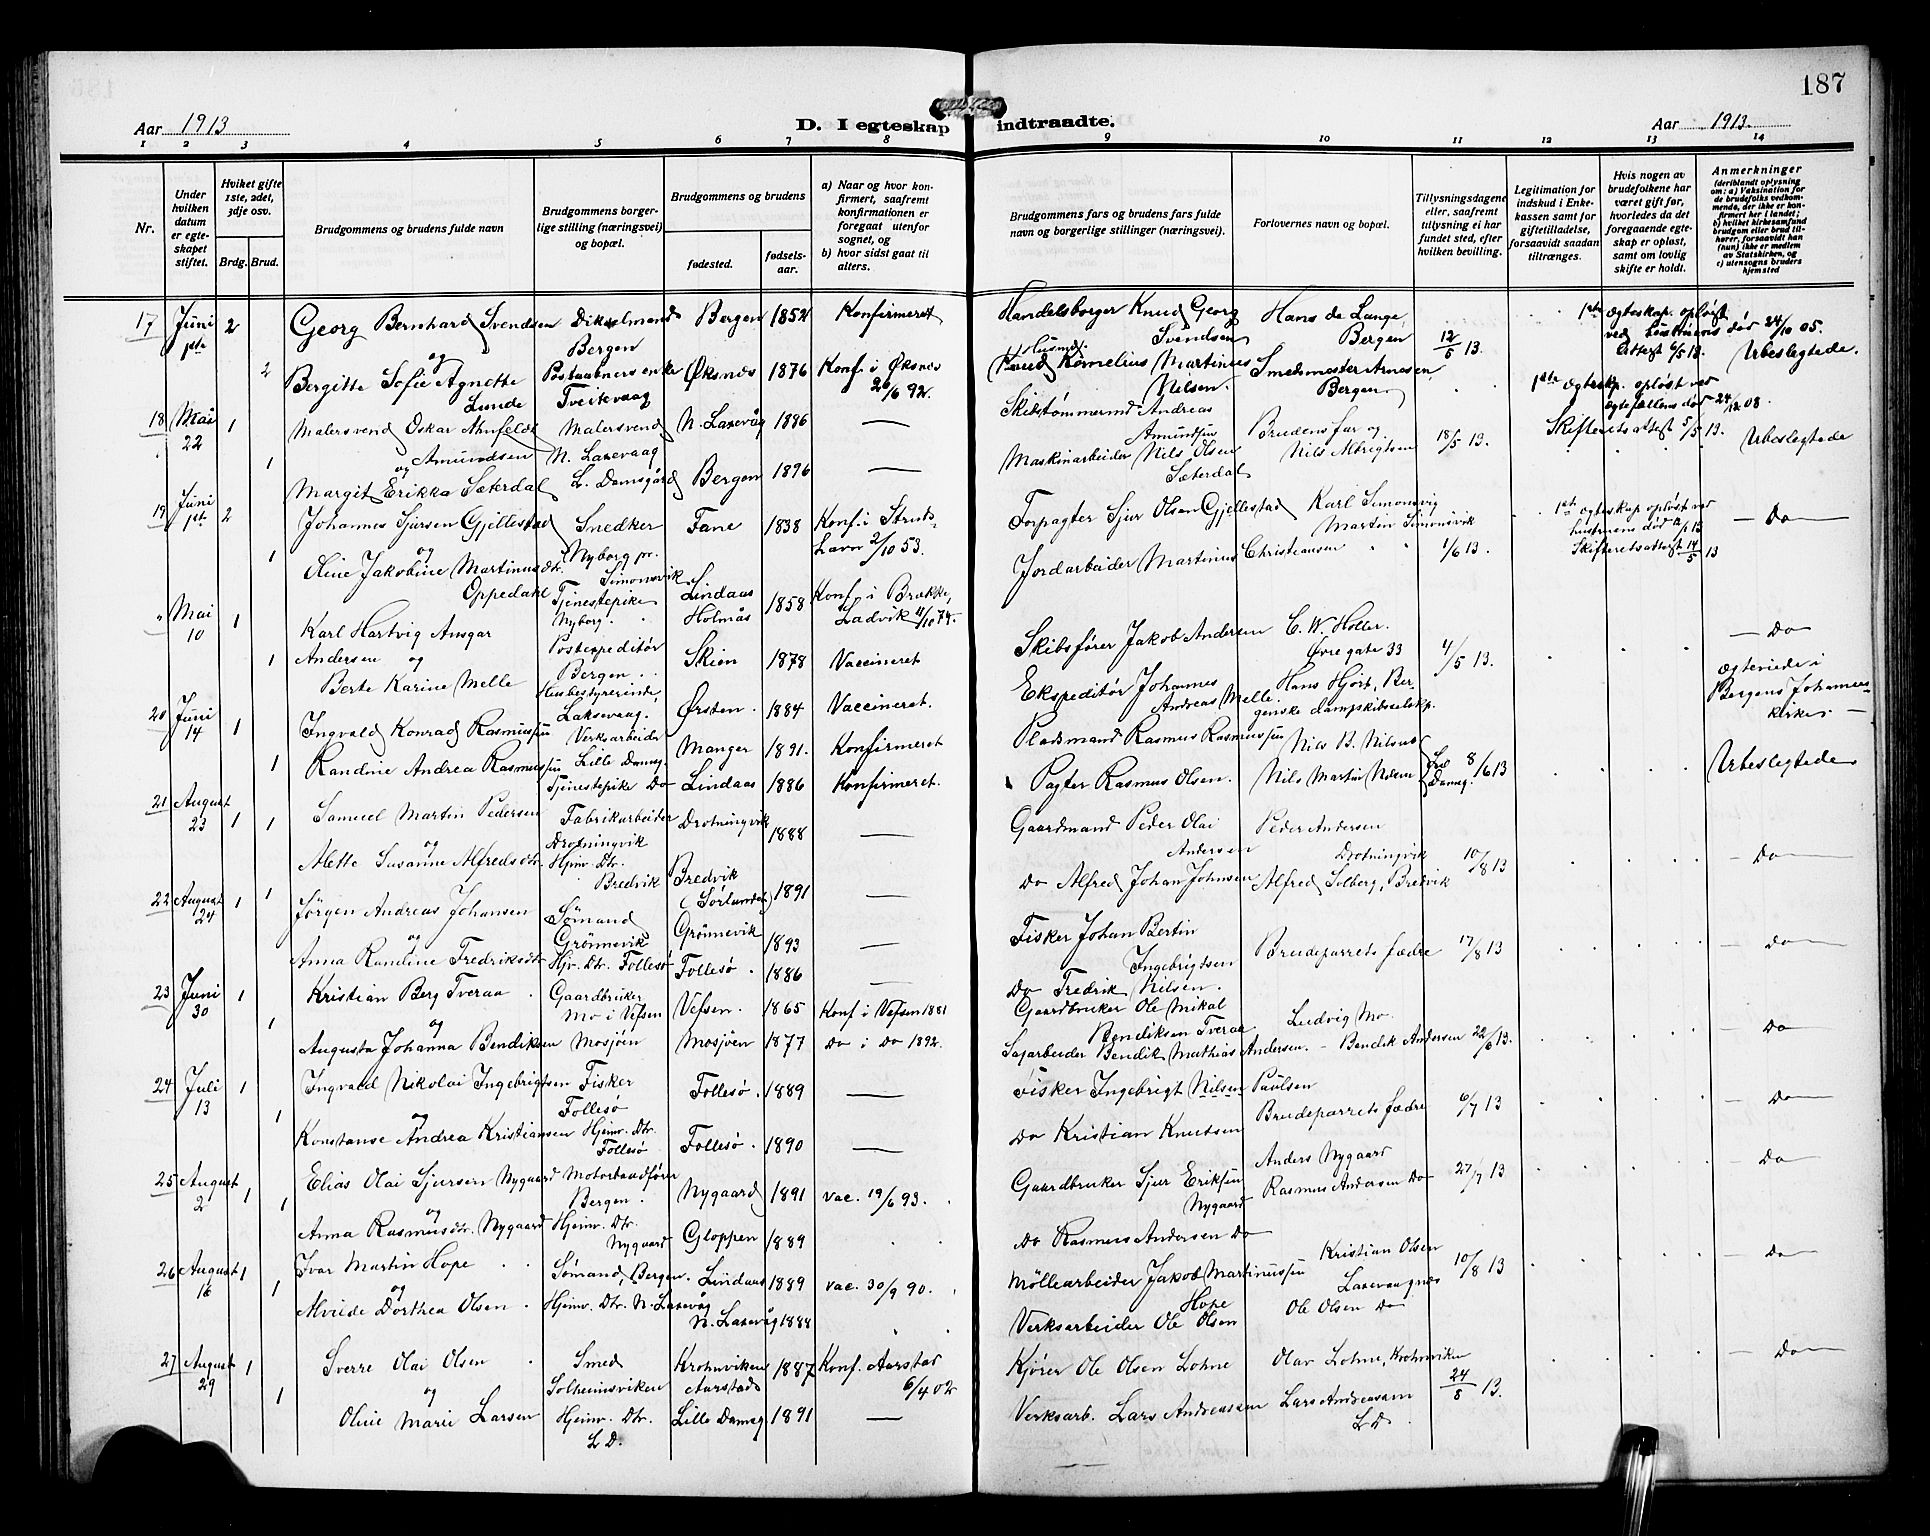 187
Aar 1913
D. I egteskap indtraadte.
Aar 1913.
1 2 3 4 5 6 7 8 9 10 11 12 13 14
Nr.
Under hvilken datum er egteskapet stiftet.
Hvilket gifte, 1ste, 2det, 3dje osv.
Brdg. Brud.
Brudgommens og brudens fulde navn
Brudgommens borgerlige stilling (næringsvei) og bopæl.
Brudgommens og brudens
fødested.
fødselsaar.
a) Naar og hvor konfirmert, saafremt konfirmationen er foregaat utenfor sognet, og b) hvor sidst gaat til alters.
Brudgommens fars og brudens fars fulde navn og borgerlige stillinger (næringsvei).
Forlovernes navn og bopæl.
Tillysningsdagene eller, saafremt tillysning ei har fundet sted, efter hvilken bevilling.
Legitimation for indskud i Enkekassen samt for giftetilladelse, forsaavidt saadan tiltrænges.
Hvis nogen av brudefolkene har været gift før, hvorledes da det foregaaende egteskap er opløst, samt om lovlig skifte er holdt.
Anmerkninger
(deriblandt oplysning om: a) Vaksination for de brudefolks vedkommende, der ikke er konfirmert her i landet; b) hvilket kirkesamfund brudgom eller brud tilhører, forsaavidt han (hun) ikke er medlem av Statskirken, og c) utensogns bruders hjemsted
17 Juni 1ste 2 Georg Bernhard Svendsen Dikselmand Bergen Bergen 1852 Konfirmeret Handelsborger Knud Georg Svendsen Hans de Lange Bergen 12/5 13. 1ste egteskap opløst ved hustruens død 24/10 05. Attest 6/5 13. Ubeslegtede.
og
2 Bergitte Sofie Agnette Lunde Postaabnerenke Tveitevaag Øksnes 1876 Konf. i Øksnes 26/6 92. Husmd. Knud Kornelius Martinus Nilsen. Smedmester Arnesen, Bergen 1ste egtesk. opløst ved egtefællens død 24/12 08.
18 Mai 22 1 Malersvend Oskar Ahnfeldt Amundsen Malersvend N. Laxevaag N. Laxevåg 1896 — Skibtømmermd Andreas Amundsen Brudens far og 18/5 13. Skifteretsattest 5/5 13. Ubeslegtede
og
1 Margit Erikka Sæterdal L. Damsgård Bergen 1896 — Maskinarbeider Nils Olsen Sæterdal Nils Albrigtsen
19 Juni 1ste 2 Johannes Sjursen Gjellestad Snedker Nyborg pr. Simonsvik Fane 1838 Konf. i Strudshavn 2/10 53. Forpagter Sjur Olsen Gjellestad Karl Simonsvig Martin Simonsvik 1/6 13. 1ste egteskap opløst ved hustruens død Skifteretsattest 14/5 13 — Do
og
1 Oline Jakobine Martinusdtr. Oppedahl Tjenestepike Nyborg. Lindaas Holmås 1858 Konf. i Brække, Ladvik 11/10 74. Jordarbeider Martinus Christiansen
" Mai 10 1 Karl Hartvig Ansgar Andersen Postexpeditør Bergen Skien 1878 Vaccineret Skibsfører Jakob Andersen C. W. Holler. Øvregate 33 4/5 13. — Do
og
1 Berte Karine Melle Husbestyrerinde Laksevaag. Ørsten 1884 Vaccineret. Ekspeditør Johannes Andreas Melle Hans Hjort, Bergenske Dampskibsselskp. Egteviede i Bergens Johanneskirke. —
20 Juni 14 1 Ingvald Konrad Rasmussen Verksarbeider Lille Damsg. Manger 1891. Konfirmeret Pladsmand Rasmus Rasmussen Nils B. Nilsen 8/6 13 Ubeslegtede
1 Randine Andrea Rasmussen Tjenestepike Do Lindaas 1886 Konfirmeret. Pagter Rasmus Olsen. Nils Martin Nilsen Damsg.
21 August 23 1 Samuel Martin Pedersen Fabrikarbeider Drotningvik Drotningvik 1888 — Gaardmand Peder Olai Andersen Peder Andersen Drotningvik 10/8 13 — Do
og
1 Mette Susanne Alfredsdtr. Hjemv. Dtr. Bredvik Bredvik (Sørlundet) 1891 — Do Alfred Johan Johnsen Alfred Solberg, Bredvik
22 August 24 1 Jørgen Andreas Johansen Sømand Grønnevik Grønnevik 1893 — Fisker Johan Bertin Ingebrigtsen Brudeparrets fædre 17/8 13 — Do
og
1 Anna Randine Fredriksdtr Hjv. Dtr. Follesø Follesø. 1886 — Do Fredrik Nilsen.
23 Juni 30 1 Kristian Berg Tveraa Gaardbruker Mo i Vefsen Vefsen. 1865 Konf i Vefsen 1881 Gaardbruker Ole Mikal Bendiksen Tveraa Ludvig Mo. 22/6 13. — Do
og
1 Augusta Johanna Bendiksen Mosjøen Mosjøen 1877 Do i Do 1892. Sagarbeider Bendik Mathias Andersen. — Bendik Andersen
24 Juli 13 1 Ingvald Nikolai Ingebrigtsen Fisker Follesø Follesø. 1889 — Fisker Ingebrigt Nilsen Paulsen Brudeparrets fædre 6/7 13 — Do
og
1 Konstanse Andrea Kristiansen Hjemv. Dtr. Follesø Follesø. 1890 — Do Kristian Knutsen
25 August 2 1 Elias Olai Sjursen Nygaard Motorbaadfører Bergen. Nygaard 1891 vac. 19/6 93. Gaardbruker Sjur Eriksen Nygaard Anders Nygaard 27/7 13 — Do
og
1 Anna Rasmusdtr. Nygaard Hjemv. Dtr. Nygaard Gloppen 1889 Do Rasmus Andersen Do Rasmus Andersen Do
26 August 16 1 Ivar Martin Hope Sømand, Bergen. Lindaas 1889 vac. 30/9 90. Møllearbeider Jakob Martinussen Hope Kristian Olsen Laxevaagnes 10/8 13 — Do
og
1 Alvilde Dorthea Olsen Hjemv. Dtr. N. Laxevåg N. Laxevåg 1888 Verksarbeider Ole Olsen Ole Olsen Do
27 August 29 1 Sverre Olai Olsen Smed Solheimsviken Krohnviken Aarstad 1887 Konf. Aarstad 6/4 02 Kjører Ole Olsen Lohne Olav Lohne, Krohnviken 24/8 13. — Do
og
1 Oline Marie Larsen Hjemv. Dtr. L D. Lille Damsg 1891 — Verksarb. Lars Andreassen Lars Andreassen L D